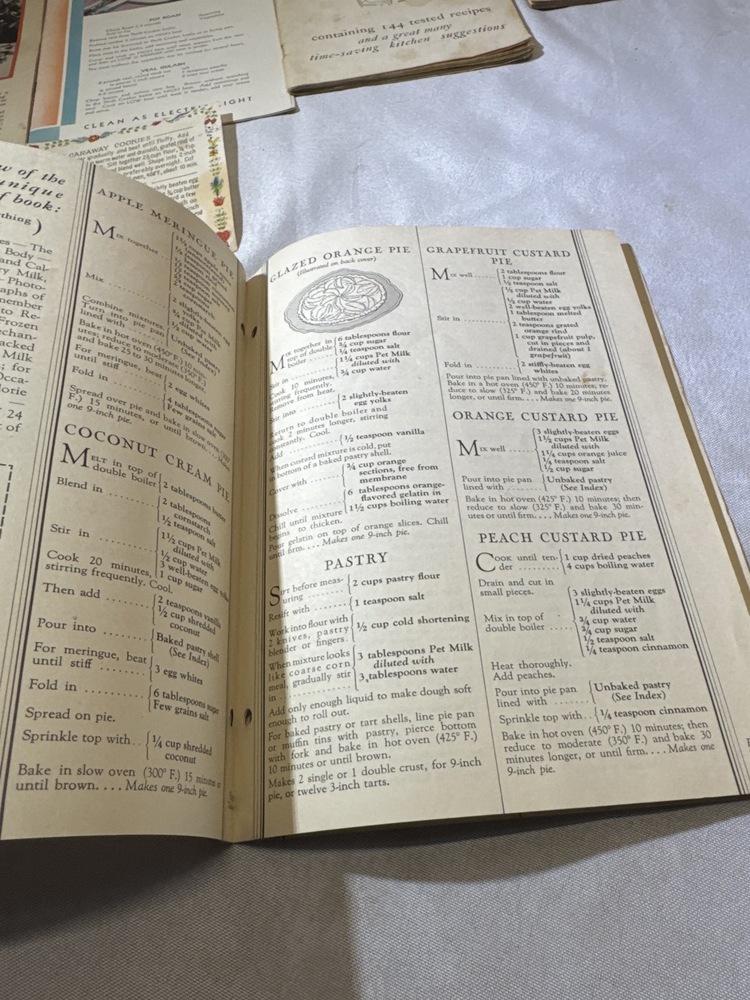 POT ROAST
VEAL GULASH
CLEAN AS ELECTRIC LIGHT
containing 144 tested recipes
and a great many
time-saving kitchen suggestions
CARAWAY COOKIES
w of the
unique
f book:
thing)
es—The
Body—
and Cal-
ry Milk,
Photo-
aphs of
member
to Re-
Frozen
echan-
acked
Milk
s; for
Occa-
lorie
24
t of
APPLE MERINGUE PIE
Mix together
Mix
Combine mixtures.
Turn into pie pan
lined with
Unbaked pastry
(See Index)
Bake in hot oven (450° F.) 10
minutes; reduce
and bake 25 to 30 minutes
For meringue, beat
2 egg whites
Fold in
Few grains salt
Spread over pie and bake in slow oven (300°
F.) 15 minutes, or until brown. . . . Makes
one 9-inch pie.
COCONUT CREAM PIE
Melt in top of
double boiler
2 tablespoons butter
Blend in
2 tablespoons
cornstarch
1/2 teaspoon salt
Stir in
1 1/2 cups Pet Milk
diluted with
1/2 cup water
3 well-beaten egg yolks
1 cup sugar
Cook 20 minutes,
stirring frequently. Cool.
Then add
2 teaspoons vanilla
1/2 cup shredded
coconut
Pour into
Baked pastry shell
(See Index)
For meringue, beat
until stiff
3 egg whites
Fold in
6 tablespoons sugar
Few grains salt
Spread on pie.
Sprinkle top with
1/4 cup shredded
coconut
Bake in slow oven (300° F.) 15 minutes or
until brown. . . . Makes one 9-inch pie.
GLAZED ORANGE PIE
(Illustrated on back cover)
Mix together in
top of double
boiler
6 tablespoons flour
3/4 cup sugar
1/4 teaspoon salt
Stir in
1 1/4 cups Pet Milk
diluted with
3/4 cup water
Cook 10 minutes,
stirring frequently.
Remove from heat.
Stir into
2 slightly-beaten
egg yolks
Return to double boiler and
cook 2 minutes longer, stirring
constantly. Cool.
Add
1/2 teaspoon vanilla
When custard mixture is cold, put
in bottom of a baked pastry shell.
Cover with
3/4 cup orange
sections, free from
membrane
Dissolve
6 tablespoons orange-
flavored gelatin in
1 1/2 cups boiling water
Chill until mixture
begins to thicken.
Pour gelatin on top of orange slices. Chill
until firm. . . . Makes one 9-inch pie.
PASTRY
Sift before meas-
uring
2 cups pastry flour
Resift with
1 teaspoon salt
Work into flour with
2 knives, pastry
blender or fingers.
1/2 cup cold shortening
When mixture looks
like coarse corn
meal, gradually stir
in
3 tablespoons Pet Milk
diluted with
3 tablespoons water
Add only enough liquid to make dough soft
enough to roll out.
For baked pastry or tart shells, line pie pan
or muffin tins with pastry, pierce bottom
with fork and bake in hot oven (425° F.)
10 minutes or until brown.
Makes 2 single or 1 double crust, for 9-inch
pie, or twelve 3-inch tarts.
GRAPEFRUIT CUSTARD
PIE
Mix well
2 tablespoons flour
1 cup sugar
1/2 teaspoon salt
Stir in
1 1/4 cup Pet Milk
diluted with
1/2 cup water
2 well-beaten egg yolks
1 tablespoon melted
butter
2 teaspoons grated
orange rind
1 cup grapefruit pulp,
cut in pieces and
drained (about 1
grapefruit)
Fold in
2 stiffly-beaten egg
whites
Pour into pie pan lined with unbaked pastry.
Bake in a hot oven (450° F.) 10 minutes; re-
duce to slow (325° F.) and bake 20 minutes
longer, or until firm. . . . Makes one 9-inch pie.
ORANGE CUSTARD PIE
Mix well
3 slightly-beaten eggs
1 1/2 cups Pet Milk
1 1/4 cups orange juice
1/4 teaspoon salt
1/2 cup sugar
Pour into pie pan
lined with
Unbaked pastry
(See Index)
Bake in hot oven (425° F.) 10 minutes; then
reduce to slow (325° F.) and bake 30 min-
utes or until firm. . . . Makes one 9-inch pie.
PEACH CUSTARD PIE
Cook until ten-
der
1 cup dried peaches
4 cups boiling water
Drain and cut in
small pieces.
Mix in top of
double boiler
3 slightly-beaten eggs
1 1/4 cups Pet Milk
diluted with
3/4 cup water
3/4 cup sugar
1/2 teaspoon salt
1/4 teaspoon cinnamon
Heat thoroughly.
Add peaches.
Pour into pie pan
lined with
Unbaked pastry
(See Index)
Sprinkle top with
1/4 teaspoon cinnamon
Bake in hot oven (450° F.) 10 minutes; then
reduce to moderate (350° F.) and bake 30
minutes longer, or until firm. . . . Makes one
9-inch pie.